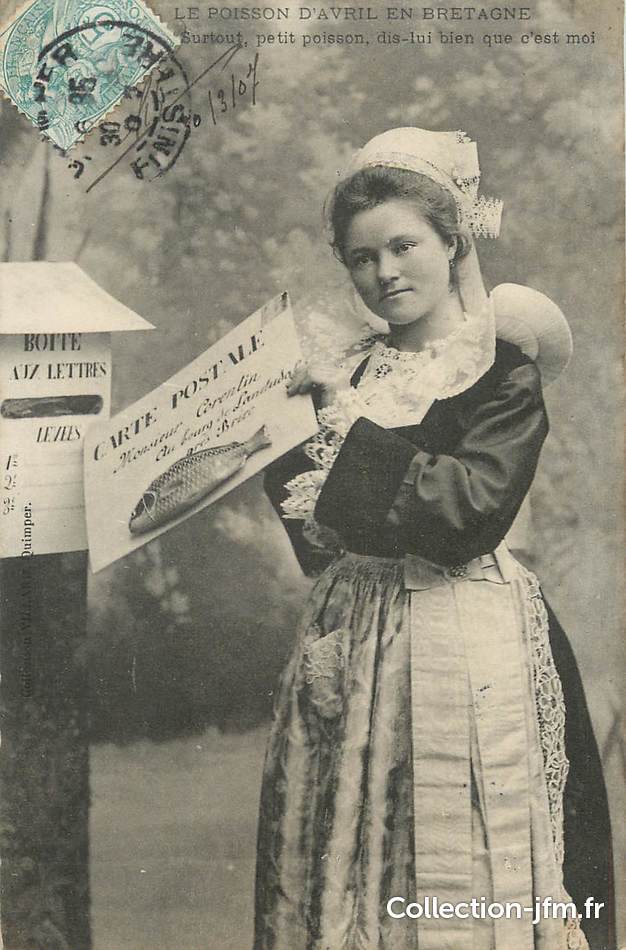 LE POISSON D'AVRIL EN BRETAGNE
Surtout, petit poisson, dis-lui bien que c'est moi
30/3/07
FINIST
BOITE
AUX LETTRES
LEVÉES
1re
2e
3e
CARTE POSTALE
Monsieur Corentin
Au bourg de
près Briec
Collection VILLARD, Quimper.
Collection-jfm.fr